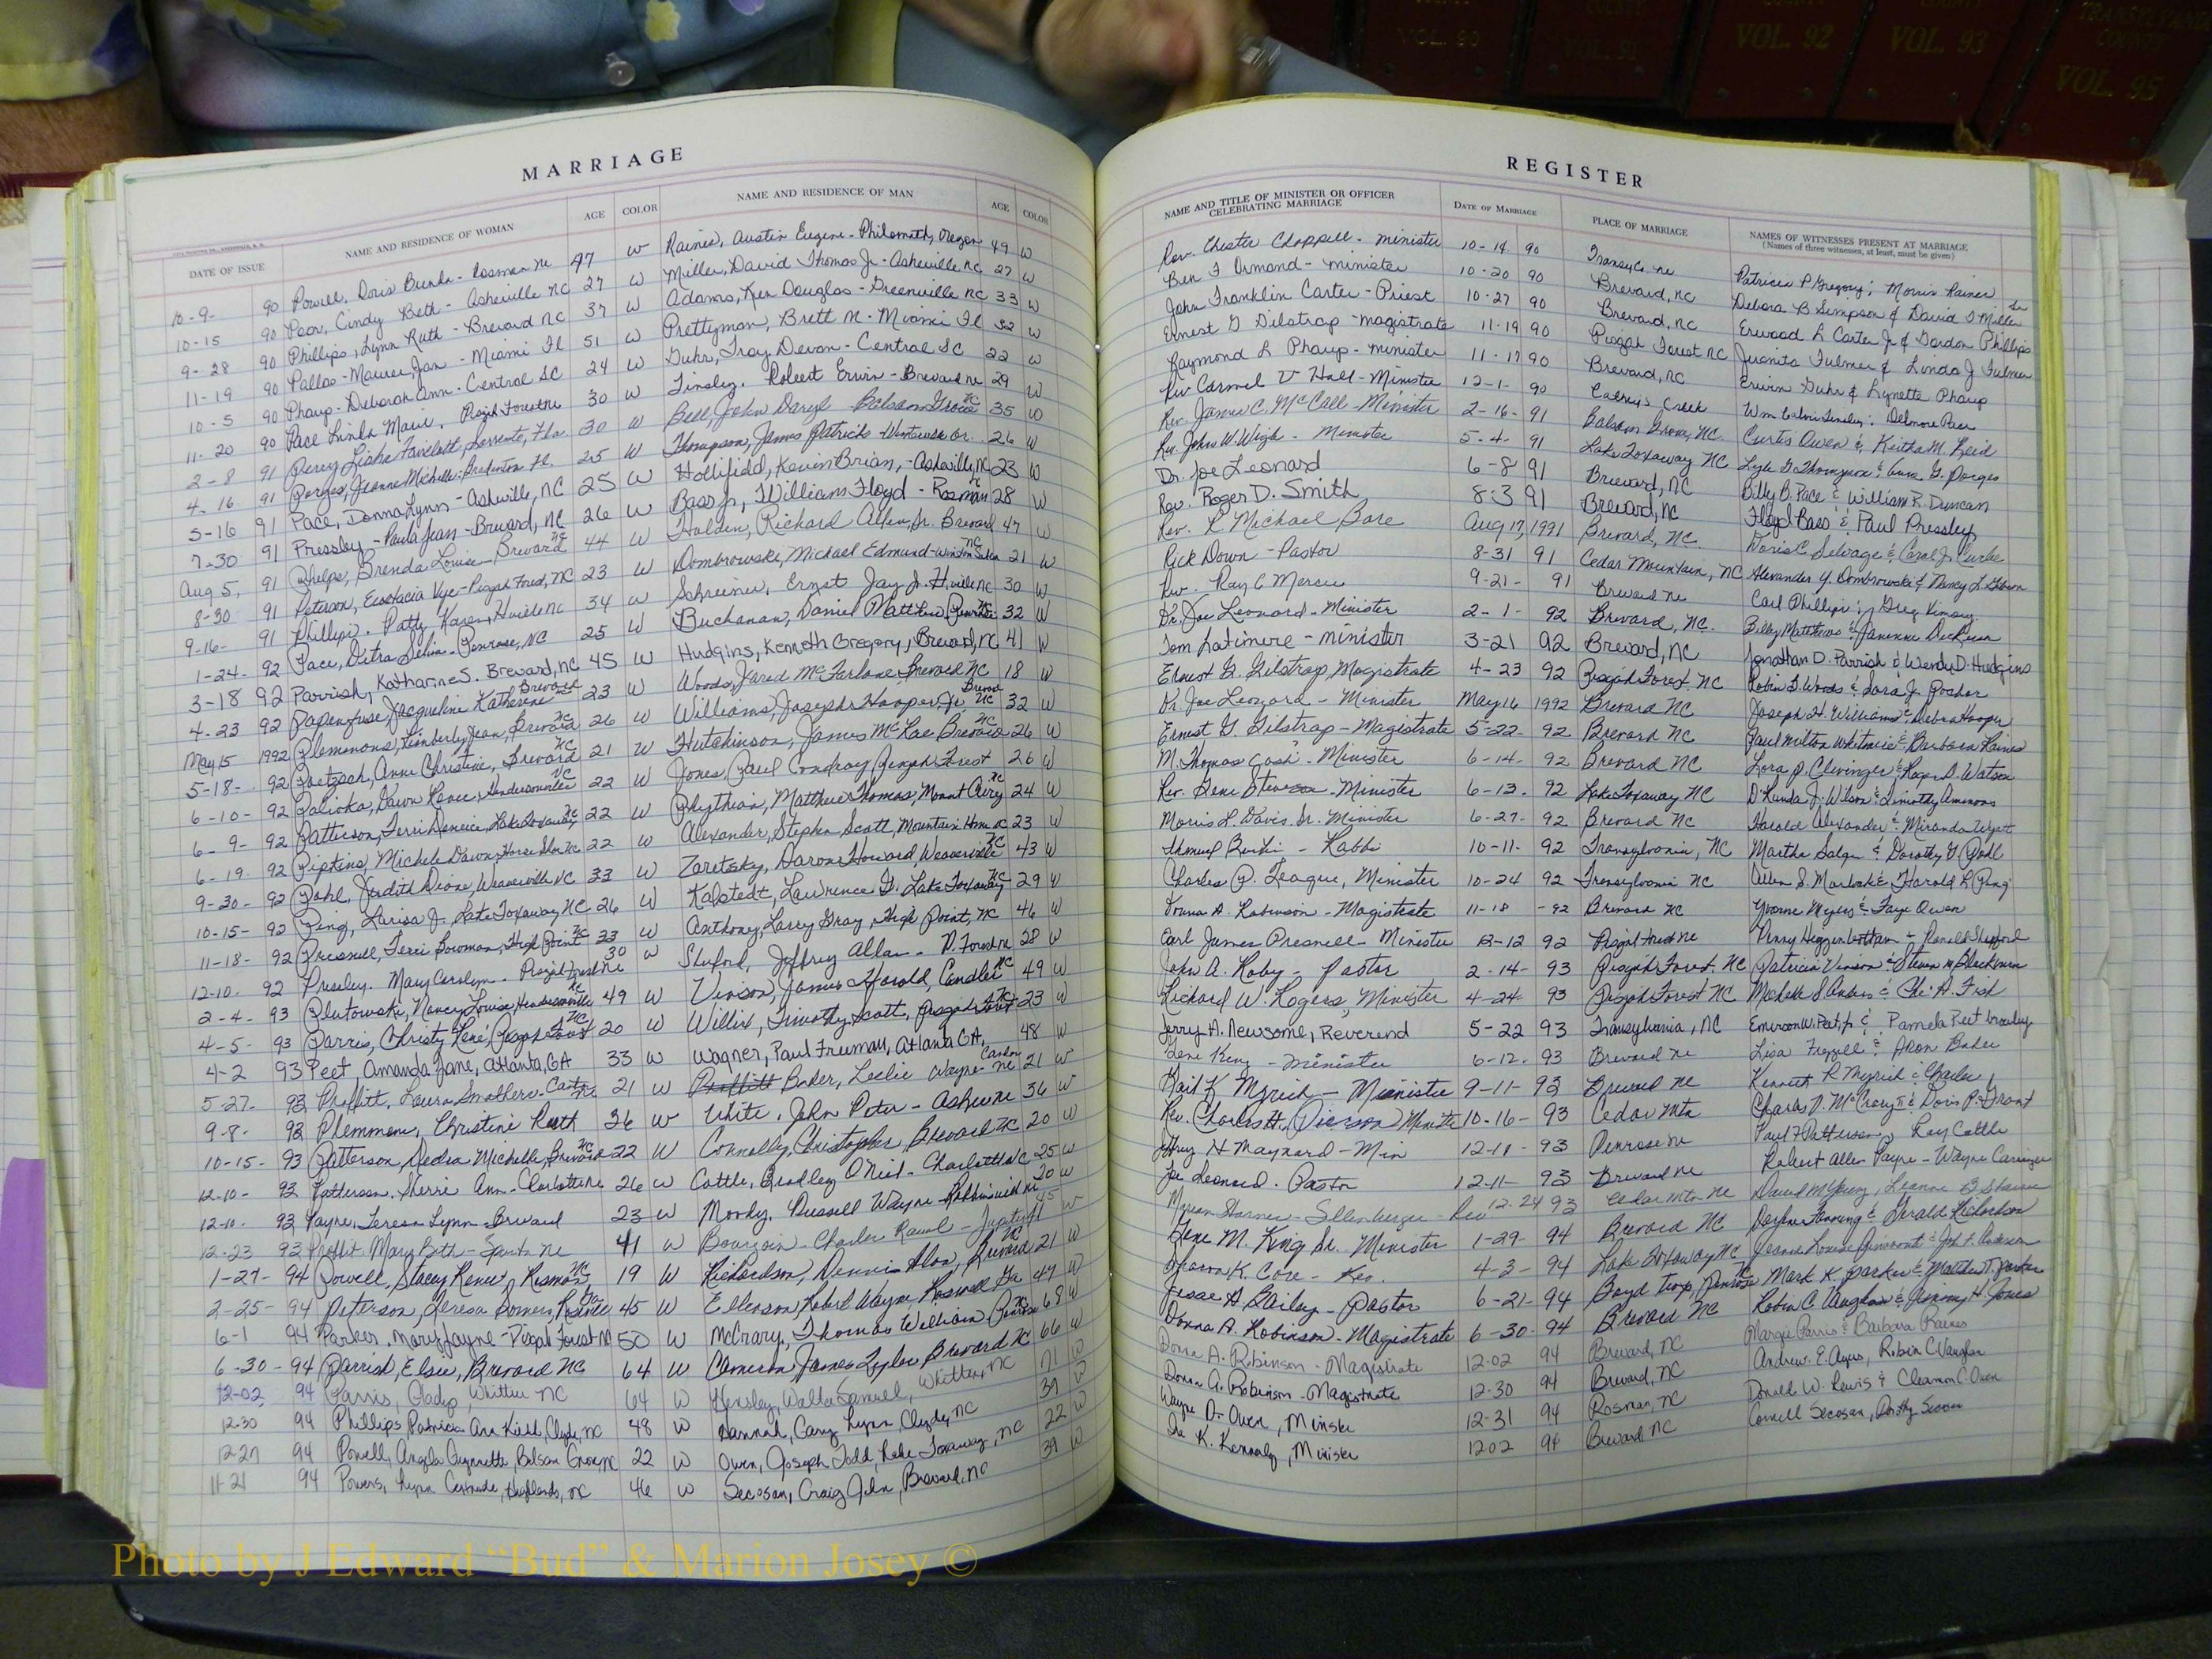 VOL. 90
COUNTY
VOL. 91
COUNTY
VOL. 92
COUNTY
VOL. 93
TRANSYLVANIA
COUNTY
VOL. 95
MARRIAGE
DATE OF ISSUE NAME AND RESIDENCE OF WOMAN AGE COLOR NAME AND RESIDENCE OF MAN AGE COLOR
10-9- 90 Powell, Doris Burke - Rosman NC 47 W Raines, Austin Eugene - Philomath, Oregon 49 W
10-15 90 Poor, Cindy Beth - Asheville NC 27 W Miller, David Thomas Jr - Asheville NC 27 W
9-28 90 Phillips, Lynn Ruth - Brevard NC 37 W Adams, Ken Douglas - Greenville NC 33 W
11-19 90 Pallas-Maurer, Jan - Miami Fl 51 W Prettyman, Brett M - Miami Fl 52 W
10-5 90 Phaup - Deborah Ann - Central SC 24 W Duhr, Troy Devon - Central SC 22 W
11-20 90 Pace Linda Marie, Pisgah Forest NC 30 W Tinsley, Robert Erwin - Brevard NC 29 W
2-8 91 Percy Lisha Fairclott, Sorrento, Fla. 30 W Bell, John Daryl Balsam Grove NC 35 W
4-16 91 Porges, Jeanne Michelle - Bradenton Fl. 25 W Thompson, James Patrick - 26 W
5-16 91 Pace, Donna Lynn - Asheville, NC 25 W Hollifield, Kevin Brian, - Asheville, NC 23 W
7-30 91 Pressley - Paula Jean - Brevard, NC 26 W Bass Jr, William Floyd - Rosman NC 28 W
Aug 5, 91 Phelps, Brenda Louise - Brevard NC 44 W Holden, Richard Allen, Jr. Brevard 47 W
8-30 91 Peterson, Eustacia Vye - Pisgah Forest, NC 23 W Dombrowski, Michael Edmund - Winston Salem NC 21 W
9-16- 91 Phillips, Patty Karen, H'ville NC 34 W Schreiner, Ernst Jay Jr. H'ville NC 30 W
1-24- 92 Pace, Ditra Selia - Penrose, NC 25 W Buchanan, Daniel Matthew, Penrose NC 32 W
3-18 92 Parrish, Katharine S. Brevard, NC 45 W Hudgins, Kenneth Gregory, Brevard, NC 41 W
4-23 92 Papenfuse, Jacqueline Katherine Brevard NC 23 W Woods, Jared McFarlane, Brevard NC 18 W
May 15 1992 Plemmons, Kimberly Jean, Brevard NC 26 W Williams, Joseph Hooper, Jr Brevard NC 32 W
5-18- 92 Poetzsch, Anne Christine, Brevard NC 21 W Hutchinson, James McRae Brevard NC 26 W
6-10- 92 Palioka, Dawn Renee, Hendersonville NC 22 W Jones, Paul Condray Pisgah Forest 26 W
6-9- 92 Patterson, Terri Denice, Lake Toxaway NC 22 W Phythian, Matthew Thomas, Mount Airy NC 24 W
6-19- 92 Pipkins, Michele Dawn, Horse Shoe NC 22 W Alexander, Stephen Scott, Mountain Home NC 23 W
9-30- 92 Pohl, Judith Diane, Weaverville NC 33 W Zaretsky, Aaron Howard Weaverville NC 43 W
10-15- 92 Ping, Larisa J. Lake Toxaway NC 26 W Kalstedt, Lawrence G. Lake Toxaway NC 29 W
11-18- 92 Presnell, Terri Bowman, High Point NC 33 W Anthony, Larry Gray, High Point, NC 46 W
12-10- 92 Presley, Mary Carolyn - Pisgah Forest NC 30 W Shuford, Jeffrey Allan - P. Forest NC 28 W
2-4- 93 Plutowski, Nancy Louise, Hendersonville NC 49 W Vinson, James Harold, Candler NC 49 W
4-5- 93 Parris, Christy Lené, Pisgah Forest NC 20 W Willis, Timothy Scott, Pisgah Forest NC 23 W
4-2 93 Peet, Amanda Jane, Atlanta, GA 33 W Wagner, Paul Freeman, Atlanta GA, 48 W
5-27- 93 Proffitt, Laura Smathers - Canton NC 21 W Proffitt Baker, Leslie Wayne - Canton NC 21 W
9-8- 93 Plemmons, Christine Ruth 26 W White, John Peter - Asheville 36 W
10-15- 93 Patterson, Dedra Michelle, Brevard NC 22 W Connolly, Christopher Brevard NC 20 W
12-10- 93 Patterson, Sherri Ann - Charlotte NC 26 W Cottle, Bradley O'Neil - Charlotte NC 25 W
12-10. 93 Payne, Teresa Lynn - Brevard 23 W Moody, Russell Wayne - Robbinsville NC 20 W
12-23 93 Proffit, Mary Beth - Sparta NC 41 W Bourgoin - Charles Raoul - Jupiter Fl 45 W
1-27- 94 Powell, Stacey Renee, Rosman, NC 19 W Richardson, Dennis Alan, Brevard NC 21 W
2-25- 94 Peterson, Teresa Somers Roswell Ga 45 W Ellenson, Robert Wayne, Roswell Ga 47 W
6-1 94 Parker, Mary Jayne - Pisgah Forest NC 50 W McCrary, Thomas William Penrose NC 68 W
6-30- 94 Parrish, Elsie, Brevard NC 64 W Cameron, James Tyler Brevard NC 66 W
12-02, 94 Parris, Gladys, Whittier NC 64 W Hensley, Walter Samuel, Whittier, NC 71 W
12-30 94 Phillips, Patricia Ann Kidd, Clyde, NC 48 W Hannah, Cary Lynn, Clyde, NC 39 W
12-27 94 Powell, Angela Gwynnette, Balsam Grove, NC 22 W Owen, Joseph Todd, Lake Toxaway, NC 22 W
11-21 94 Powers, Lynn Gertrude, Highlands, NC 46 W Secosan, Craig John, Brevard, NC 39 W
REGISTER
NAME AND TITLE OF MINISTER OR OFFICER CELEBRATING MARRIAGE DATE OF MARRIAGE PLACE OF MARRIAGE NAMES OF WITNESSES PRESENT AT MARRIAGE
(Names of three witnesses, at least, must be given)
Rev. Chester Chappell - minister 10-14 90 Transy Co. NC Patricia P Gregory; Morris Raines Sr
Ben F Ormand - minister 10-20 90 Brevard, NC Debora B Simpson & David T Miller
John Franklin Carter - Priest 10-27 90 Brevard, NC Erwood L Carter Jr & Gordon Phillips
Ernest G Gilstrap - magistrate 11-19 90 Pisgah Forest NC Juanita Fulmer & Linda J Fulmer
Raymond L Phaup - minister 11-17 90 Brevard, NC Erwin Duhr & Lynette Phaup
Rev Carmel V Hall - Minister 12-1- 90 Catheys Creek Wm Calvin Tinsley; Delmore Pace
Rev. James C. McCall - Minister 2-16- 91 Balsam Grove, NC. Curtis Owen & Keitha M. Reid
Rev. John W. Weigh - Minister 5-4- 91 Lake Toxaway NC Lyle G Thompson & Anna G. Porges
Dr. Joe Leonard 6-8 91 Brevard, NC Billy B. Pace & William R. Duncan
Rev. Roger D. Smith 8-3 91 Brevard, NC Floyd Bass & Paul Pressley
Rev. R Michael Bare Aug 17, 1991 Brevard, NC. Doris C. Selvage & Carol J.
Rick Down - Pastor 8-31 91 Cedar Mountain, NC Alexander Y. Dombrowski & Nancy L. Gibson
Rev. Ray C Mercer 9-21- 91 Brevard NC Carl Phillips; Greg Kimsey
Dr. Joe Leonard - Minister 2-1- 92 Brevard, NC. Billy Matthews & Janenne Dickison
Tom Latimere - minister 3-21 92 Brevard, NC Jonathan D. Parrish & Wendy D. Hudgins
Ernest G. Gilstrap, Magistrate 4-23 92 Pisgah Forest NC Robin G. Woods & Sara J.
Dr. Joe Leonard - Minister May 16 1992 Brevard NC Joseph H. Williams & Debra Hooper
Ernest G. Gilstrap - Magistrate 5-22- 92 Brevard NC Paul Milton Whitmire & Barbara Raines
M. Thomas Cash - Minister 6-14- 92 Brevard NC Lora P. Clevinger & Roger D. Watson
Rev. Gene Stevenson - Minister 6-13- 92 Lake Toxaway NC D'Landa J. Wilson & Timothy Ammons
Morris L Davis, Jr. Minister 6-27- 92 Brevard NC Harold Alexander & Miranda Wyatt
Shmuel Birki - Rabbi 10-11- 92 Transylvania, NC Martha Salger & Dorothy G. Pohl
Charles P. Teague, Minister 10-24 92 Transylvania NC Allen S. & Harold L Ping
Donna A. Robinson - Magistrate 11-18 -92 Brevard NC Yvonne Myers & Faye Owen
Carl James Presnell - Minister 12-12 92 Pisgah Forest NC Penny Higginbotham - Ronald Shuford
John A. Roby - pastor 2-14- 93 Pisgah Forest, NC Patricia Vinson & Steven M Blackburn
Richard W. Rogers, Minister 4-24- 93 Pisgah Forest NC Michelle S Anders & Che' A. Fish
Jerry A. Newsome, Reverend 5-22 93 Transylvania, NC Emerson W. Peet, Jr & Pamela Peet
Gene King - minister 6-12- 93 Brevard NC Lisa Frizzell & Aron Baker
Gail K Myrick - Minister 9-11- 93 Brevard NC Kenneth R Myrick & Charles
Rev. Charles H. (Pierson) Minister 10-16- 93 Cedar Mtn Charles D. McCrary II & Doris P. Grant
Jeffrey H Maynard - Min 12-11- 93 Penrose NC Paul F Patterson, Ray Cottle
Joe Leonard. Pastor 12-11- 93 Brevard NC Robert Allen Payne - Wayne
Sellenberger - Rev 12-24 93 Cedar Mtn NC David M Young, Leanne B
Gene M. King Sr. Minister 1-29- 94 Brevard NC Daryl Fanning & Gerald Richardson
Sharon K. Core - Rev. 4-3- 94 Lake Toxaway NC
Jesse A Bailey - Pastor 6-21- 94 Boyd Twp, Penrose NC Mark K. Parker & Matthew T. Parker
Donna A. Robinson - Magistrate 6-30- 94 Brevard NC Robin C. Vaughan & Jimmy H. Jones
Donna A. Robinson - Magistrate 12-02 94 Brevard, NC Margie Parris & Barbara Raines
Donna A. Robinson - Magistrate 12-30 94 Brevard, NC Andrew E. Ayers, Robin C Vaughan
Wayne D. Owen, Minister 12-31 94 Rosman, NC Donald W. Lewis & Cleamon C. Owen
Ira K. Kennerly, Minister 12-02 94 Brevard, NC Cornell Secosan, Dorothy Secosan
Photo by J Edward "Bud" & Marion Josey ©